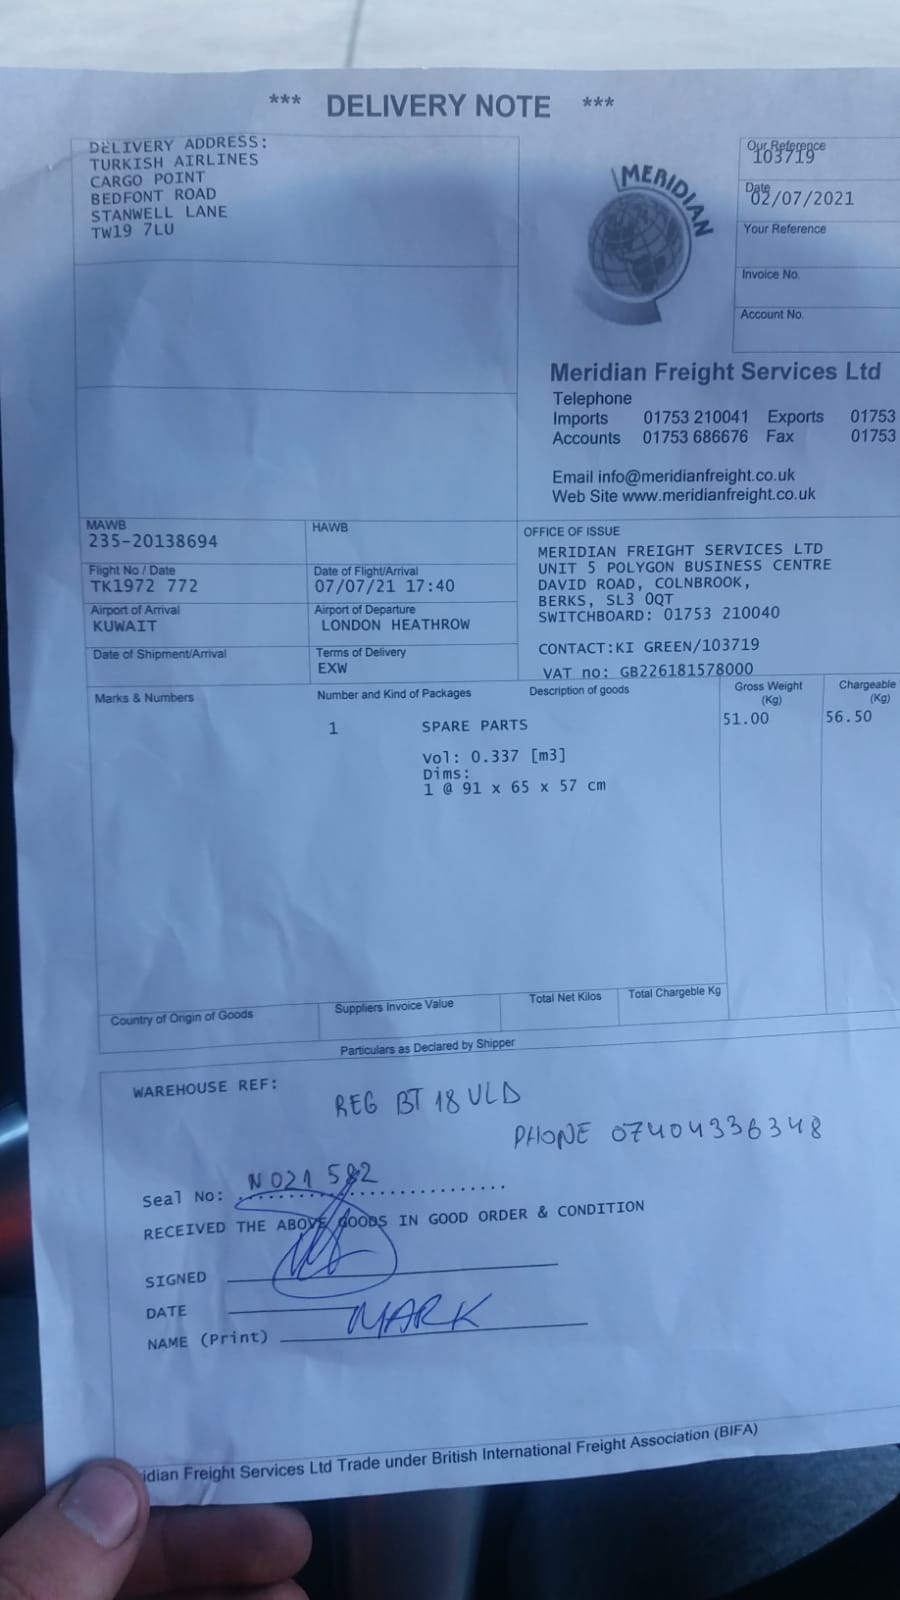 *** DELIVERY NOTE ***
DELIVERY ADDRESS:
TURKISH AIRLINES
CARGO POINT
BEDFONT ROAD
STANWELL LANE
TW19 7LU
MERIDIAN
Our Reference
103719
Date
02/07/2021
Your Reference
Invoice No.
Account No.
Meridian Freight Services Ltd
Telephone
Imports 01753 210041 Exports 01753
Accounts 01753 686676 Fax 01753
Email info@meridianfreight.co.uk
Web Site www.meridianfreight.co.uk
MAWB
235-20138694
HAWB
Flight No / Date
TK1972 772
Date of Flight/Arrival
07/07/21 17:40
Airport of Arrival
KUWAIT
Airport of Departure
LONDON HEATHROW
Date of Shipment/Arrival
Terms of Delivery
EXW
OFFICE OF ISSUE
MERIDIAN FREIGHT SERVICES LTD
UNIT 5 POLYGON BUSINESS CENTRE
DAVID ROAD, COLNBROOK,
BERKS, SL3 0QT
SWITCHBOARD: 01753 210040
CONTACT:KI GREEN/103719
VAT no: GB226181578000
Marks & Numbers Number and Kind of Packages Description of goods Gross Weight (Kg) Chargeable (Kg)
1 SPARE PARTS 51.00 56.50
Vol: 0.337 [m3]
Dims:
1 @ 91 x 65 x 57 cm
Country of Origin of Goods Suppliers Invoice Value Total Net Kilos Total Chargeble Kg
Particulars as Declared by Shipper
WAREHOUSE REF:
REG BT 18 ULD
PHONE 07404336348
Seal No: N021 582
RECEIVED THE ABOVE GOODS IN GOOD ORDER & CONDITION
SIGNED
DATE
NAME (Print) MARK
idian Freight Services Ltd Trade under British International Freight Association (BIFA)